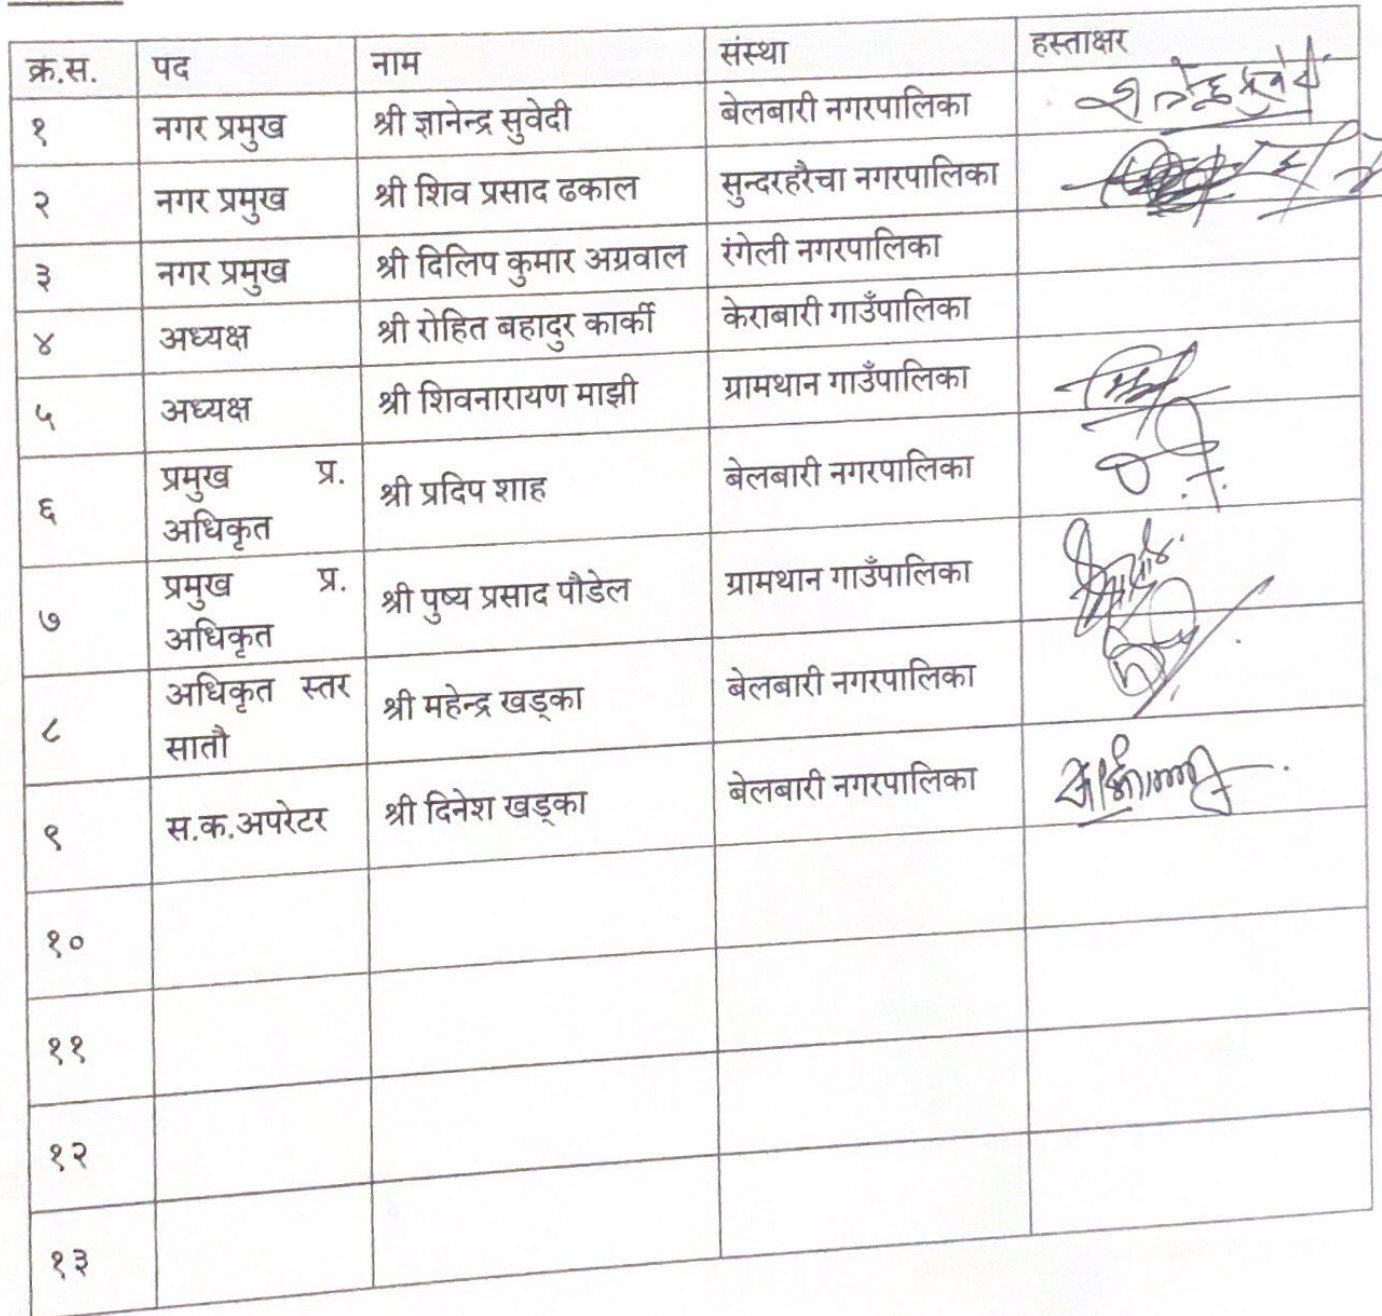 क्र.स. पद नाम संस्था हस्ताक्षर
१ नगर प्रमुख श्री ज्ञानेन्द्र सुवेदी बेलबारी नगरपालिका
२ नगर प्रमुख श्री शिव प्रसाद ढकाल सुन्दरहरैचा नगरपालिका
३ नगर प्रमुख श्री दिलिप कुमार अग्रवाल रंगेली नगरपालिका
४ अध्यक्ष श्री रोहित बहादुर कार्की केराबारी गाउँपालिका
५ अध्यक्ष श्री शिवनारायण माझी ग्रामथान गाउँपालिका
६ प्रमुख प्र. श्री प्रदिप शाह बेलबारी नगरपालिका
अधिकृत
७ प्रमुख प्र. श्री पुष्य प्रसाद पौडेल ग्रामथान गाउँपालिका
अधिकृत
८ अधिकृत स्तर श्री महेन्द्र खड्का बेलबारी नगरपालिका
सातौ
९ स.क.अपरेटर श्री दिनेश खड्का बेलबारी नगरपालिका
१०
११
१२
१३